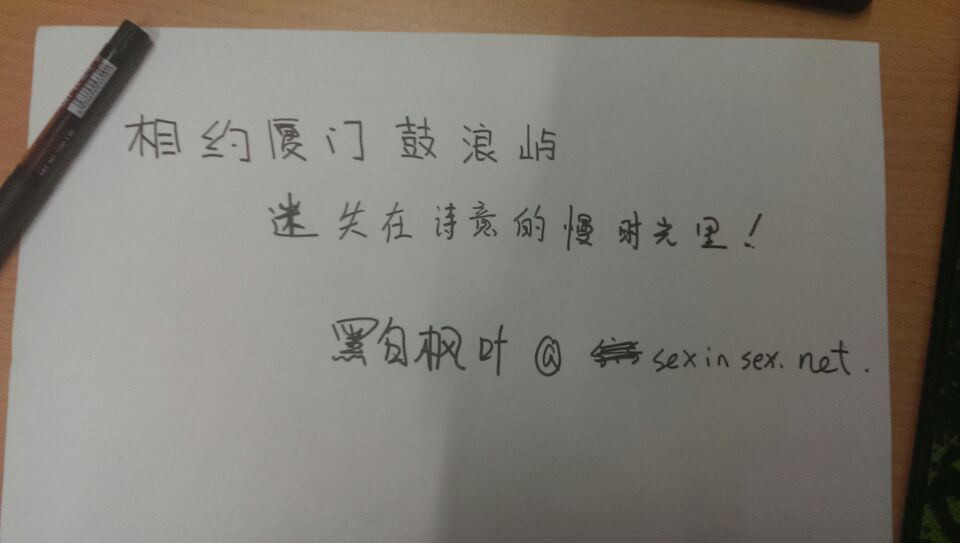 相约厦门鼓浪屿
迷失在诗意的慢时光里！
黑白枫叶@ sexinsex.net.